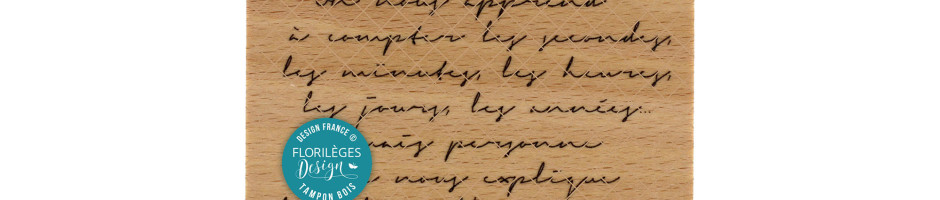 nous apprend
à compter les secondes,
les minutes, les heures,
les jours, les années...
mais personne
nous explique
DESIGN FRANCE ©
FLORILÈGES
Design
TAMPON BOIS